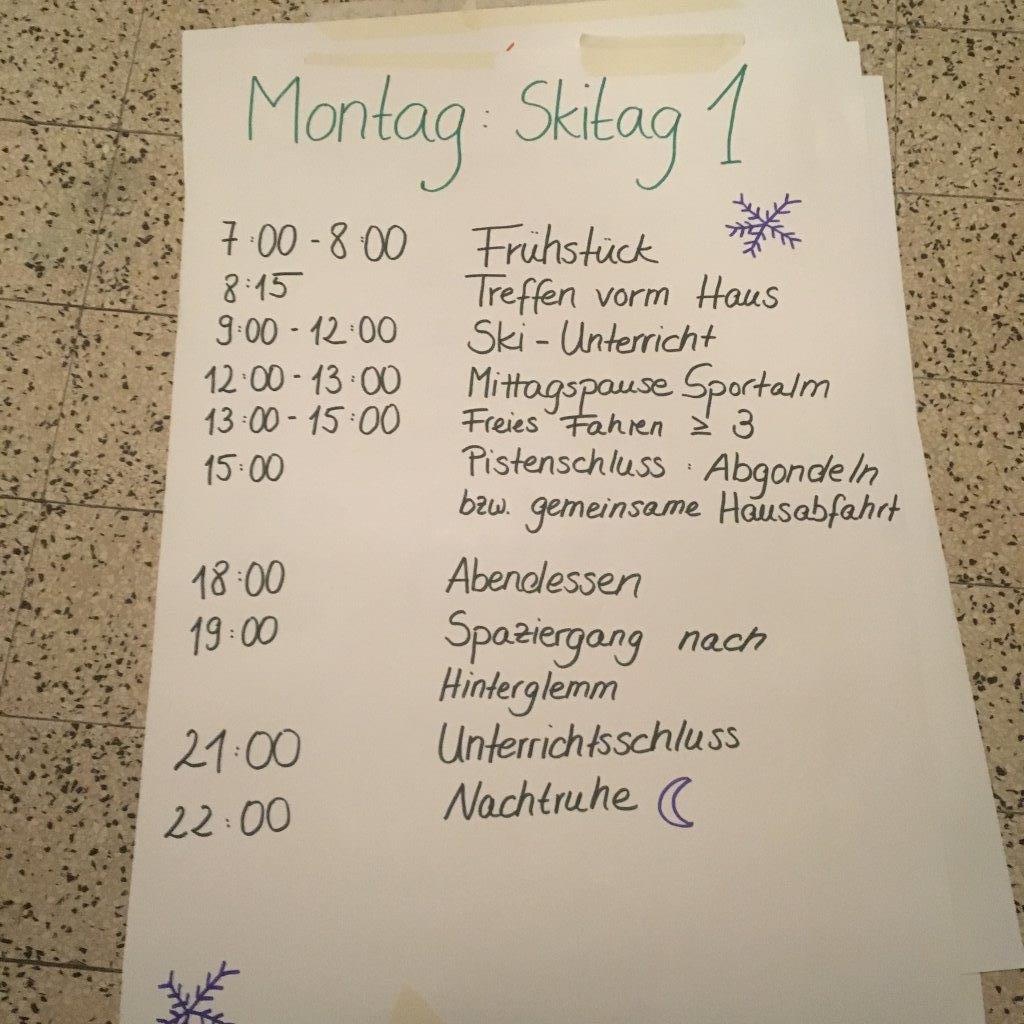 Montag: Skitag 1
7:00 - 8:00 Frühstück
8:15 Treffen vorm Haus
9:00 - 12:00 Ski - Unterricht
12:00 - 13:00 Mittagspause Sportalm
13:00 - 15:00 Freies Fahren ≥ 3
15:00 Pistenschluss : Abgondeln
bzw. gemeinsame Hausabfahrt
18:00 Abendessen
19:00 Spaziergang nach
Hinterglemm
21:00 Unterrichtsschluss
22:00 Nachtruhe